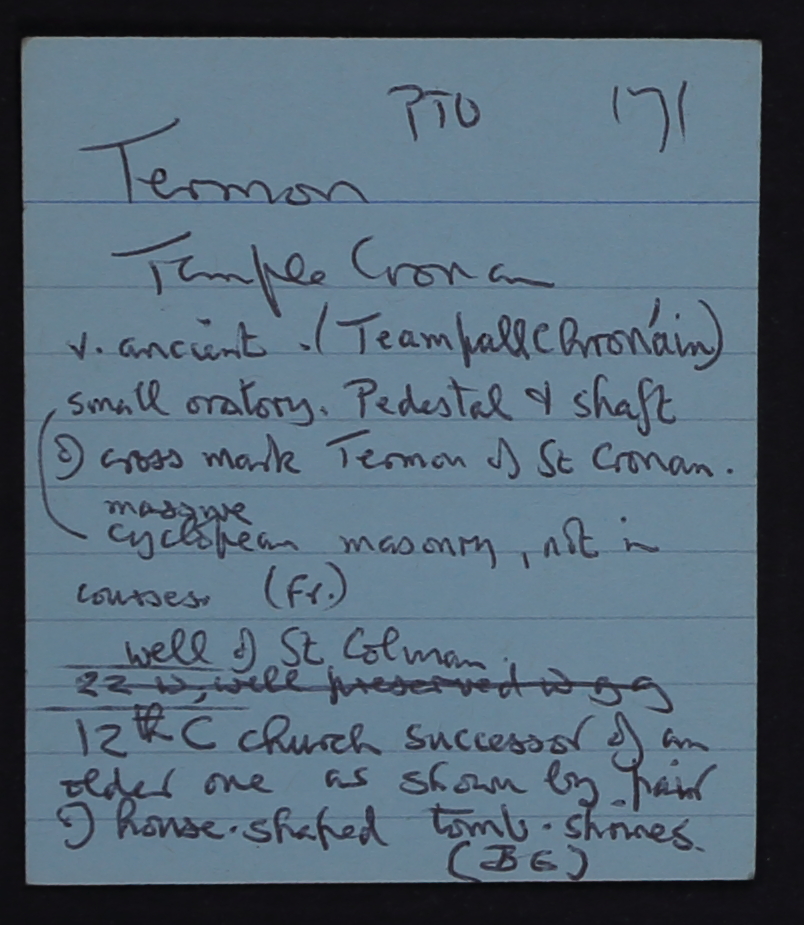 PTO 171
Termon
Temple Cronan
v. ancient. (Teampall Chronáin)
small oratory. Pedestal & shaft
of cross mark Termon of St Cronan.
massive
cyclopean masonry, not in
courses. (Fr.)
well of St Colman.
22 w, well preserved w g g
12th C church successor of an
older one as shown by pair
of house-shaped tomb-shrines.
(BG)